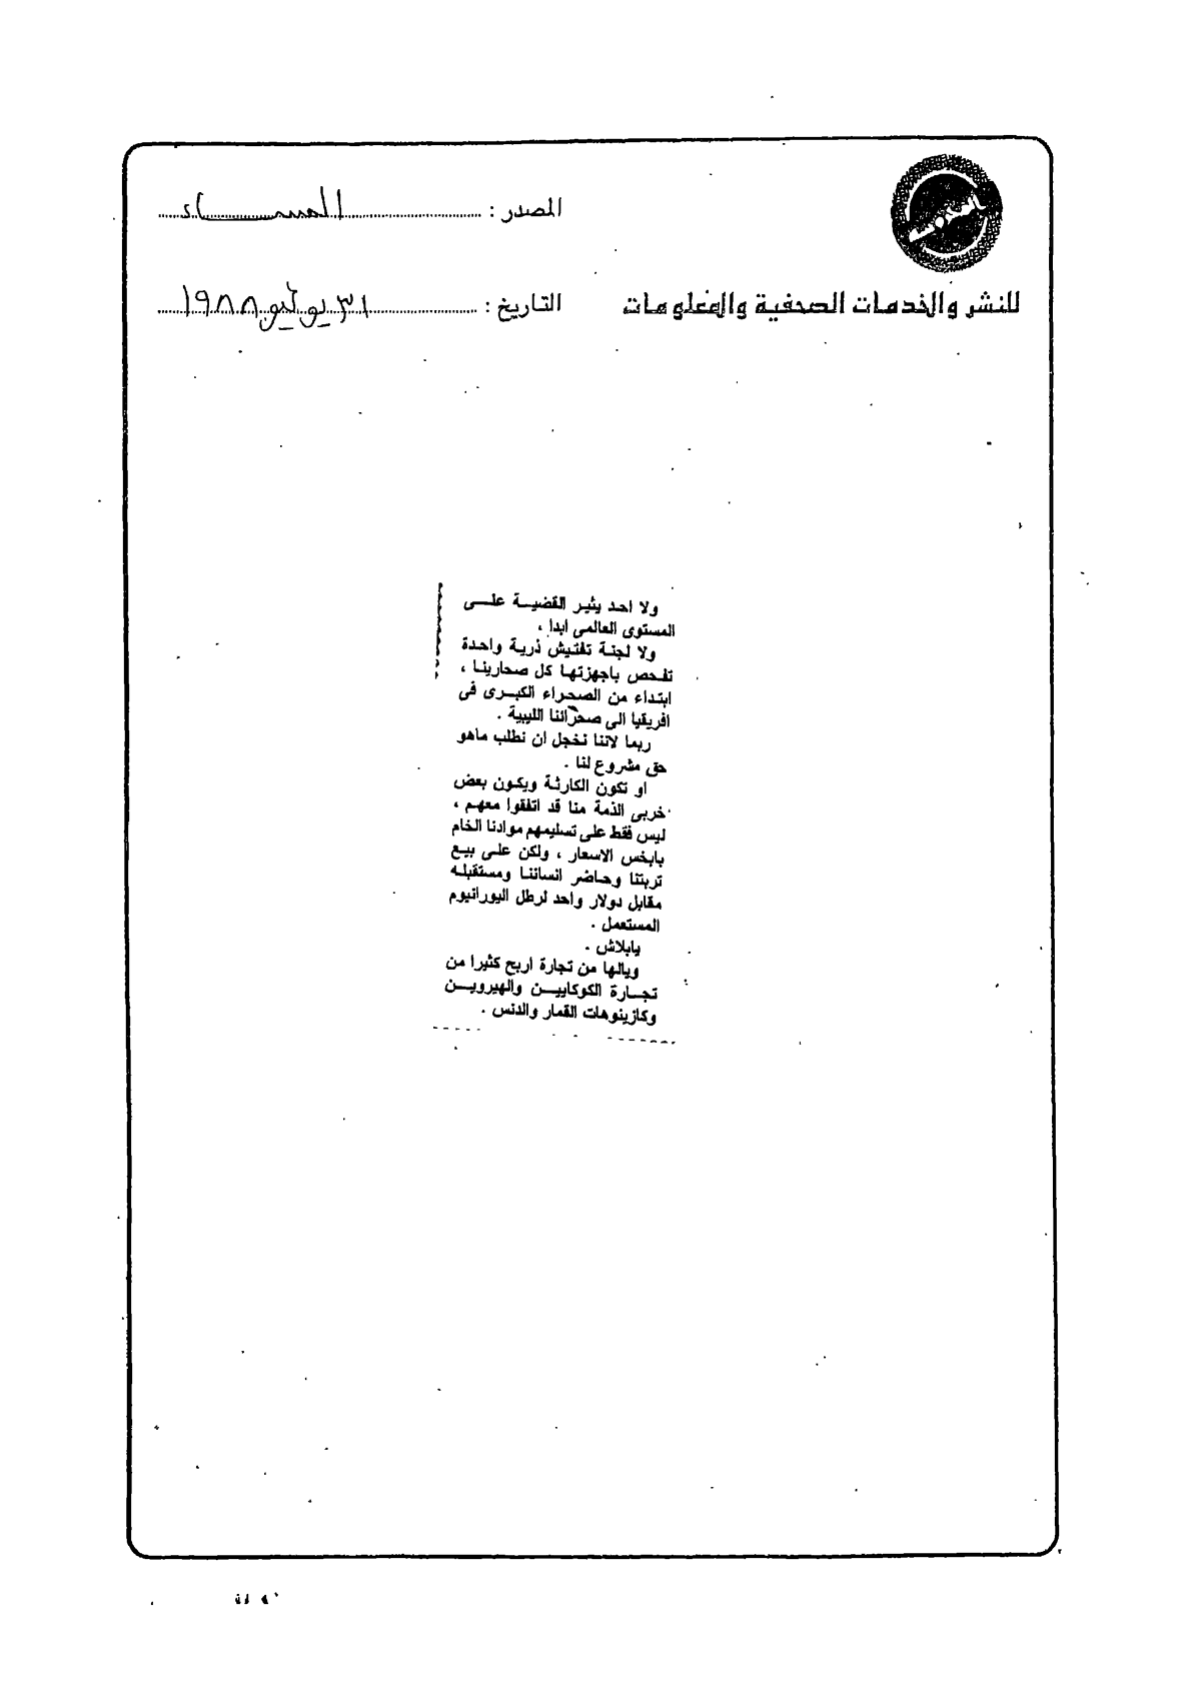 المصدر : المساء
للنشر والخدمات الصحفية والمعلومات
التاريخ : ٣١ يوليو ١٩٨٨
ولا احد يثير القضية على
المستوى العالمى ابدا ،
ولا لجنة تفتيش ذرية واحدة
تفحص باجهزتها كل صحارينا ،
ابتداء من الصحراء الكبرى فى
افريقيا الى صحرائنا الليبية .
ربما لاننا نخجل ان نطلب ماهو
حق مشروع لنا .
او تكون الكارثة ويكون بعض
خربى الذمة منا قد اتفقوا معهم ،
ليس فقط على تسليمهم موادنا الخام
بابخس الاسعار ، ولكن على بيع
تربتنا وحاضر انساننا ومستقبله
مقابل دولار واحد لرطل اليورانيوم
المستعمل .
يابلاش .
ويالها من تجارة اربح كثيرا من
تجارة الكوكايين والهيروين
وكازينوهات القمار والدنس .